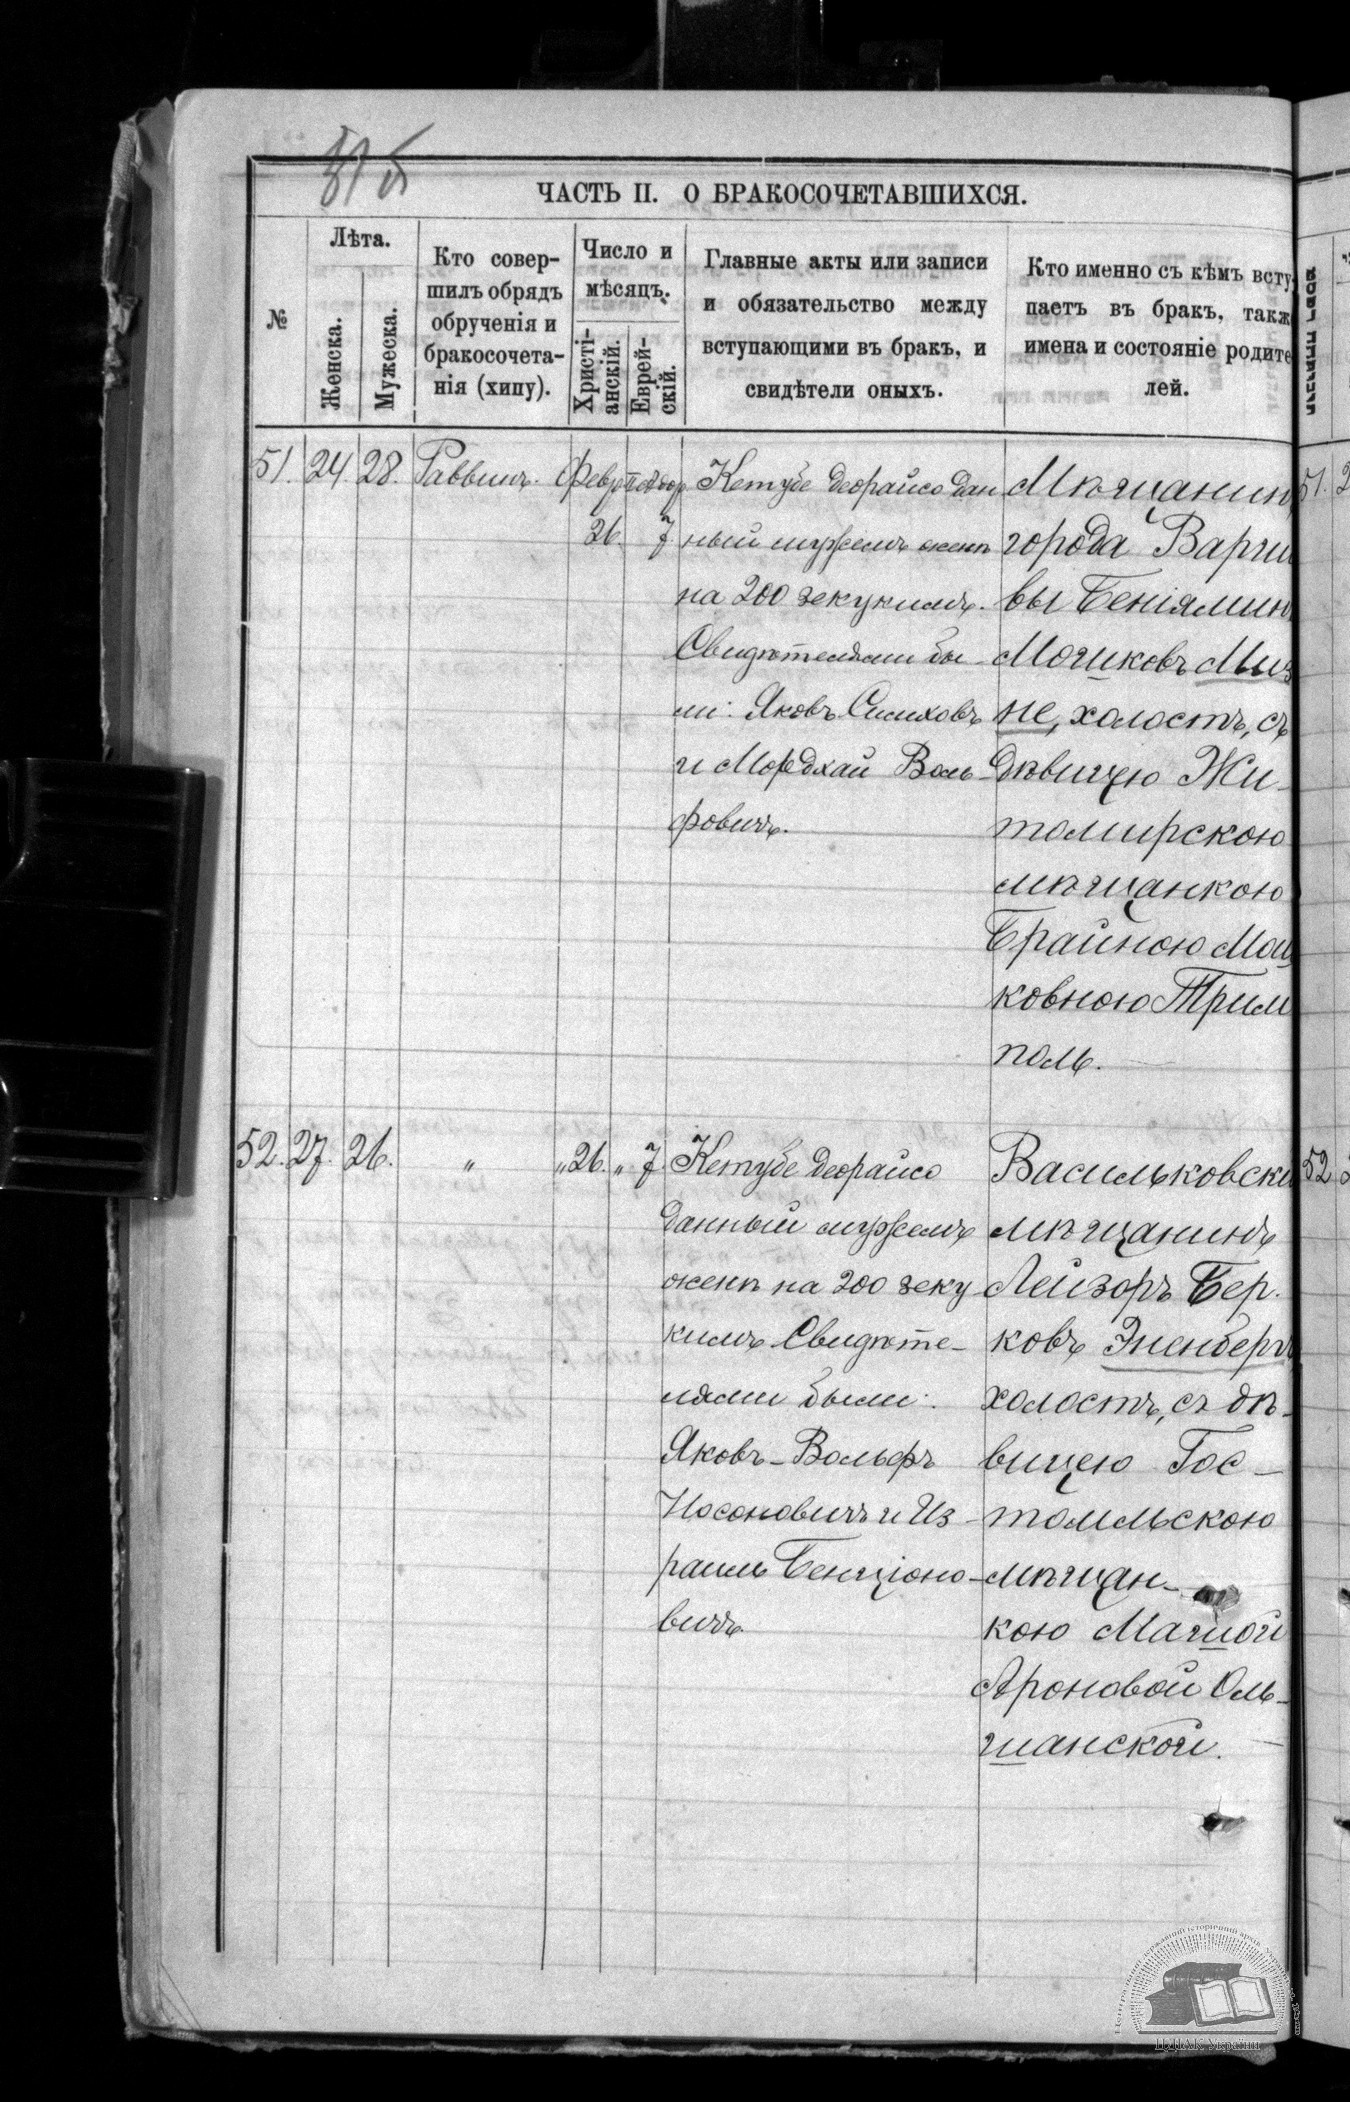 ЧАСТЬ II. О БРАКОСОЧЕТАВШИХСЯ.
№
Лѣта.
Женска.
Мужеска.
Кто совер-
шилъ обрядъ
обрученія и
бракосочета-
нія (хипу).
Число и
мѣсяцъ.
Христі-
анскій.
Еврей-
скій.
Главные акты или записи
и обязательство между
вступающими въ бракъ, и
свидѣтели оныхъ.
Кто именно съ кѣмъ всту
паетъ въ бракъ, такж
имена и состояніе родите
лей.
51. 24 28. Раввинъ. Февр
26. 7
Кетубе деорайсо дан
ный мужемъ женѣ
на 200 зекукимъ.
Свидѣтелями бы-
ли: Яковъ Симховъ
и Мордхай Воль-
фовичъ.
Мѣщанинъ
города Варша
вы Беніяминъ
Мошковъ Миз
не, холостъ, съ
дѣвицею Жи-
томирскою
мѣщанкою
Брайною Мош
ковною Трим
поль.
52. 27. 26. " " 26. " 7.
Кетубе деорайсо
данный мужемъ
женѣ на 200 зеку
кимъ Свидѣте-
лями были:
Яковъ-Вольфъ
Носоновичъ и Из-
раиль Бенціоно-
вичъ.
Васильковскі
мѣщанинъ
Лейзоръ Бер-
ковъ Эненбергъ
холостъ, съ дѣ-
вицею Гос-
томльскою
мѣщан-
кою Машой
Ароновой Оль-
шанской.
51. 2
52
ЦДІАК України